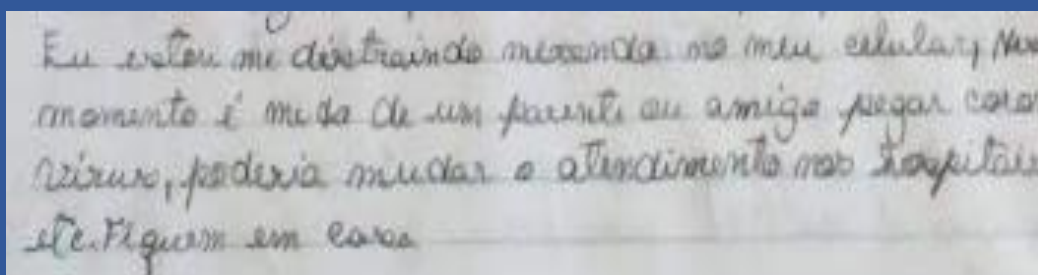 Eu estou me distraindo mexendo no meu celular,
momento é medo de um parente ou amigo pegar coro
vírus, poderia mudar o atendimento nos hospitais
etc. Fiquem em casa